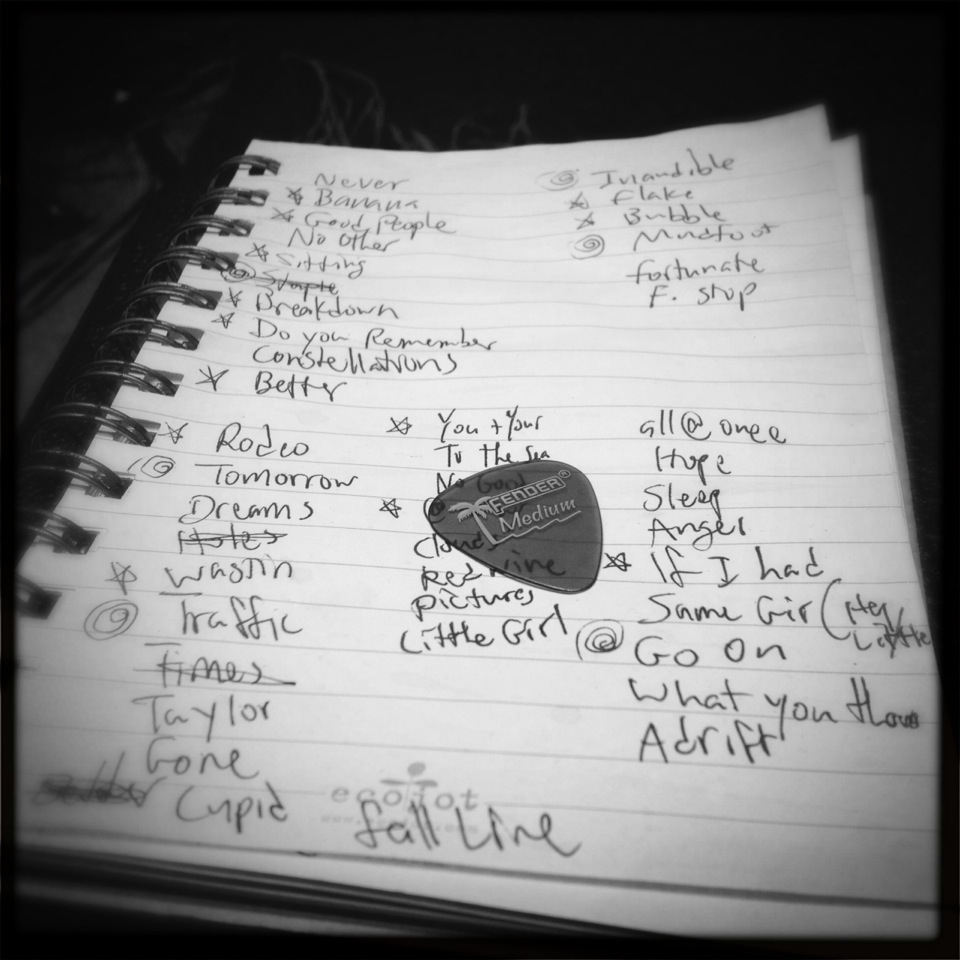 Never
Banana
Good People
No Other
Sitting
Staple
Breakdown
Do you Remember
Constellations
Better
Inaudible
Flake
Bubble
Mudfoot
fortunate
F. stop
Rodeo
Tomorrow
Dreams
Holes
Wastin
Traffic
Times
Taylor
Gone
Cupid
You + Your
To the Sea
No Good
Clouds
Red Wine
pictures
Little Girl
FENDER®
Medium
all @ once
Hope
Sleep
Anger
If I had
Same Girl (Hey
Little
Go On
What you thou
Adrift
ecojot
fall Line